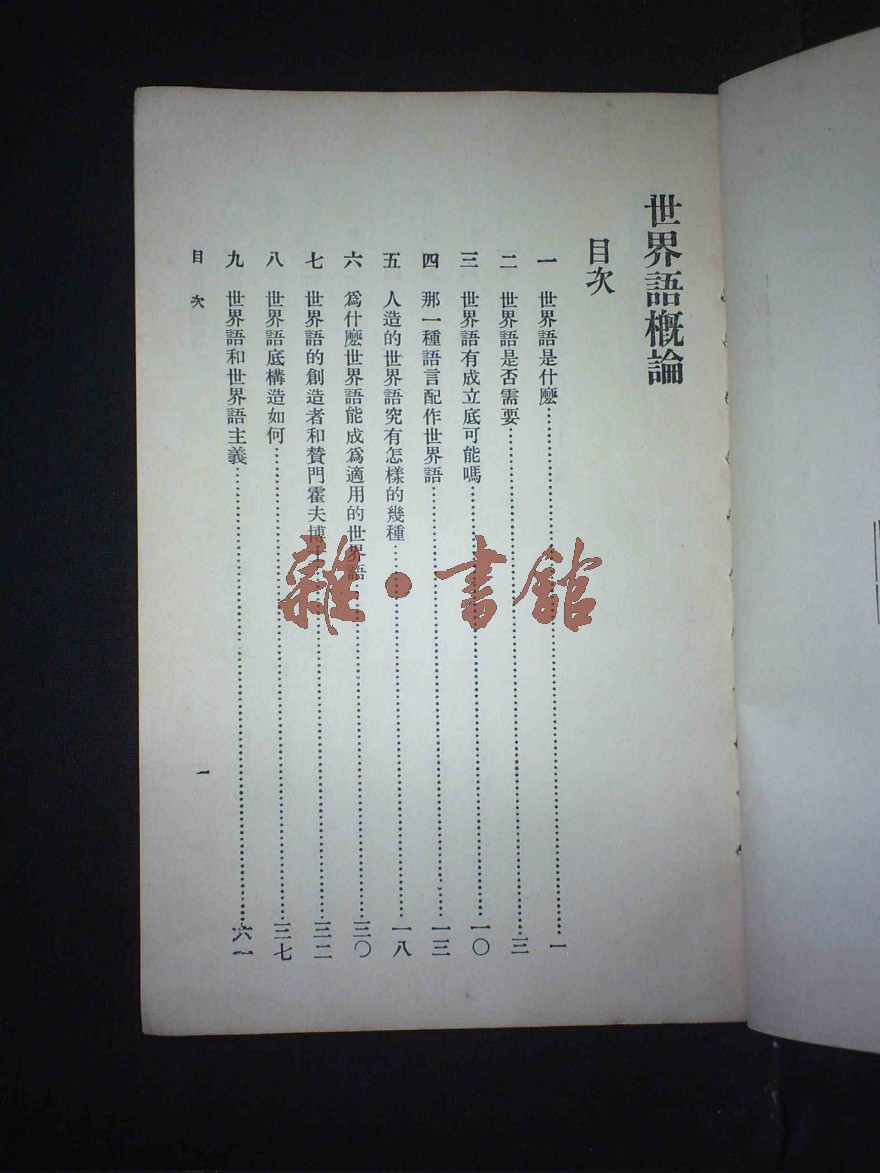 世界語概論
目次
一 世界語是什麽……一
二 世界語是否需要……三
三 世界語有成立底可能嗎……一〇
四 那一種語言配作世界語……一三
五 人造的世界語究有怎樣的幾種……一八
六 爲什麽世界語能成爲適用的世界語……三〇
七 世界語的創造者和贊門霍夫博士……三二
八 世界語底構造如何……三七
九 世界語和世界語主義……六一
目次
一
雜·書館